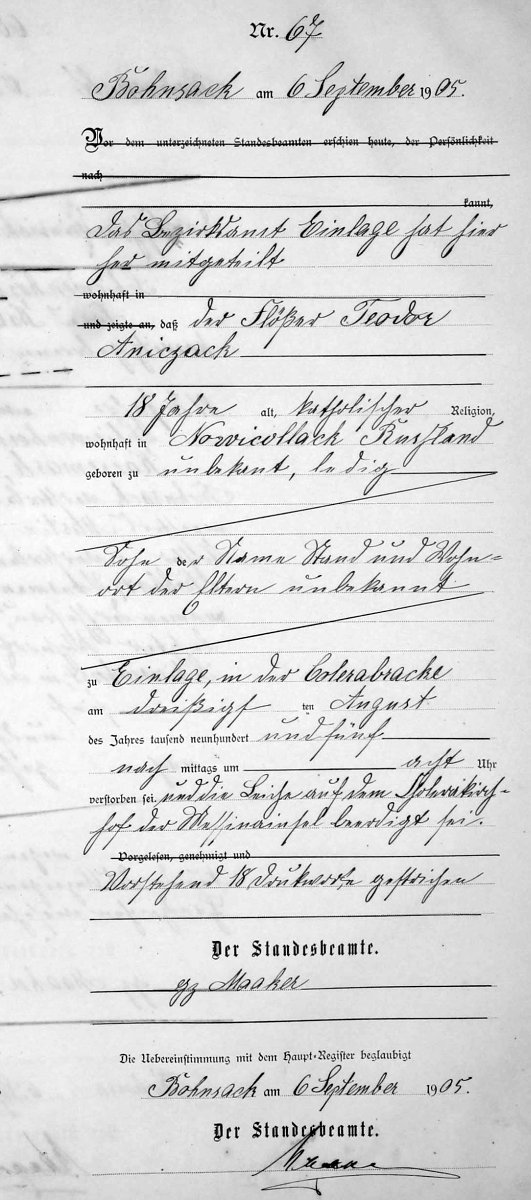 Nr. 67
Bohnsack am 6 September 1905.
Vor dem unterzeichneten Standesbeamten erschien heute, der Persönlichkeit
nach
kannt,
Das Bezirksamt Einlage hat hier
her mitgeteilt
wohnhaft in
und zeigte an, daß der Flößer Teodor
Aniczack
18 Jahre alt, katholischer Religion,
wohnhaft in Nowicollack Russland
geboren zu unbekant, ledig
Sohn der Name Stand und Wohn=
ort der Eltern unbekannt
zu Einlage, in der Colerabracke
am dreißigs ten August
des Jahres tausend neunhundert und fünf
nach mittags um acht Uhr
verstorben sei und die Leiche auf dem Cholerakirch=
hof der Messinainsel beerdigt sei.
Vorgelesen, genehmigt und
Vorstehend 18 Druckworte gestrichen
Der Standesbeamte.
gz Maaker
Die Uebereinstimmung mit dem Haupt-Register beglaubigt
Bohnsack am 6 September 1905.
Der Standesbeamte.